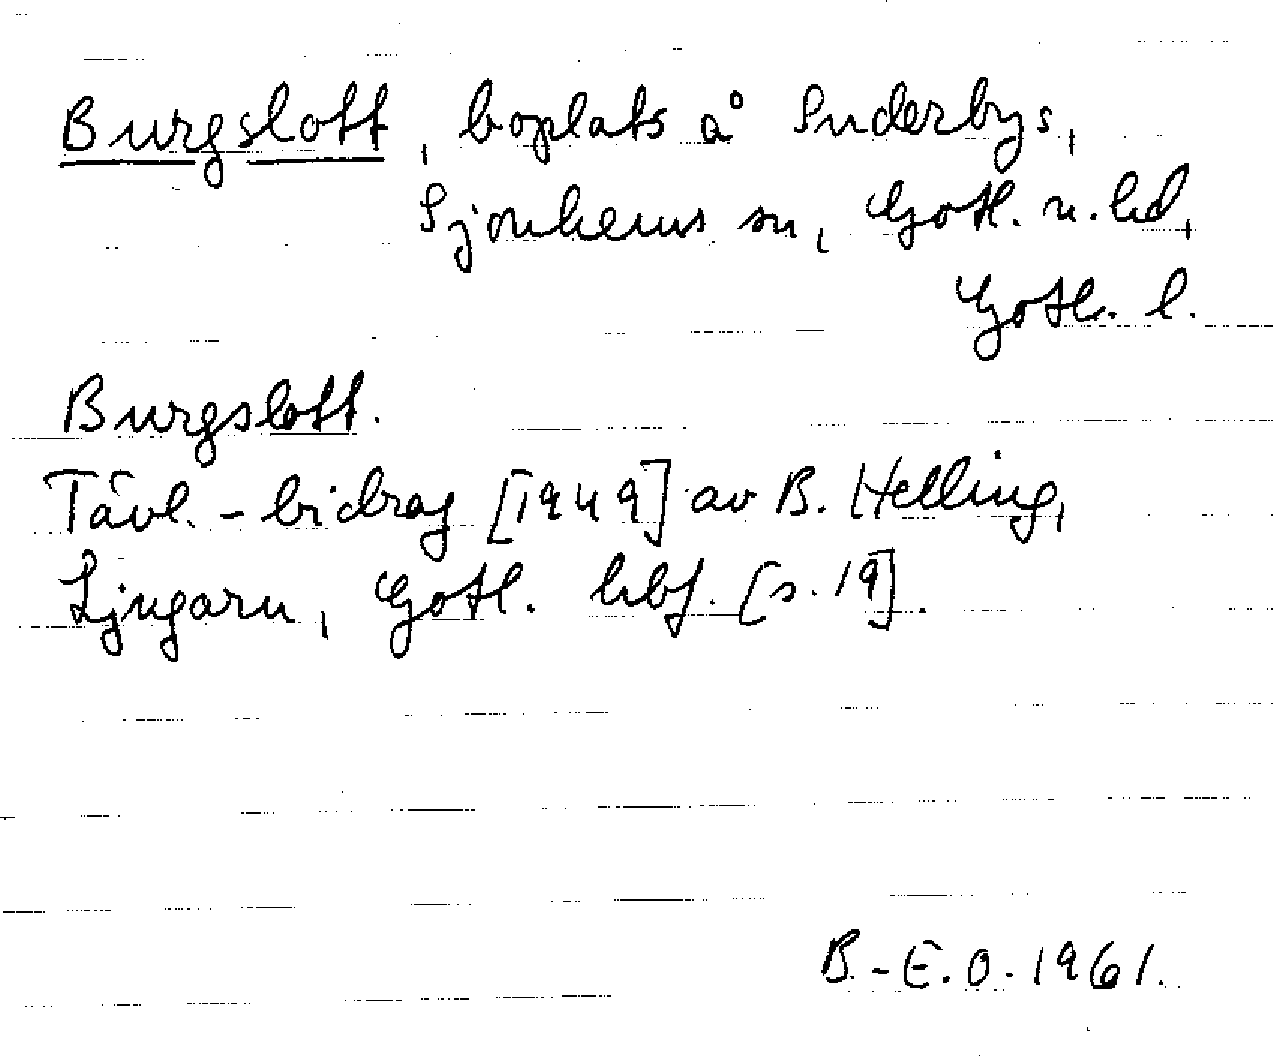 Burgslott, boplats å Suderbys,
Sjonhems sn, Gotl. n. hd,
Gotl. l.
Burgslott.
Tävl.-bidrag [1949] av B. Helling,
Ljugarn, Gotl. hbf. [s. 19].
B.-E.O. 1961.